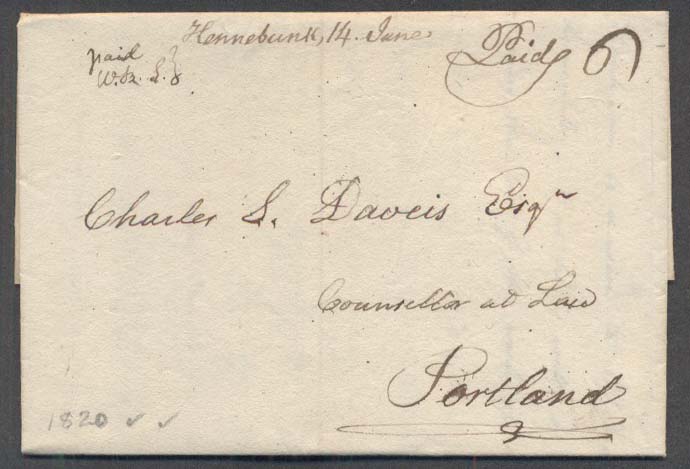 Kennebunk, 14. June
Paid 6
paid
Charles S. Daveis Esqr
Counsellor at Law
Portland
1820